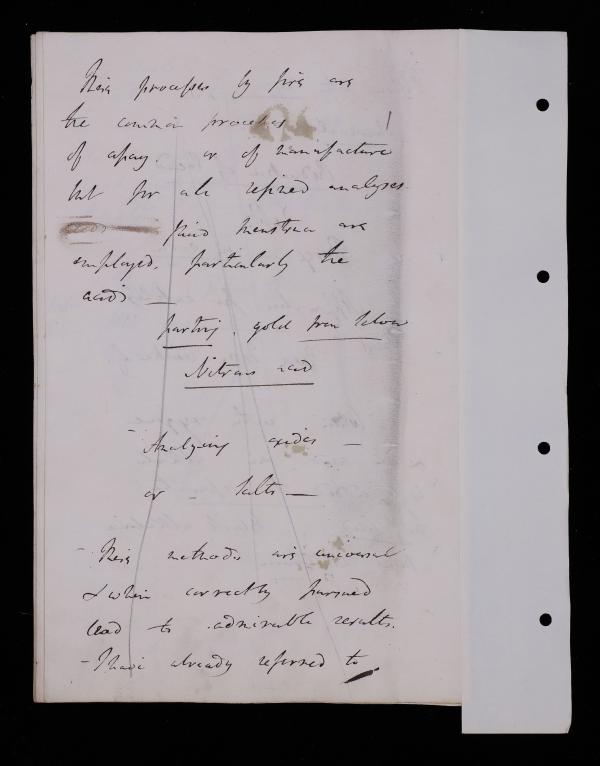 These processes by fire are
the common processes
of assay or of manufacture
but for all refined analyses
fluid menstrua are
employed, particularly the
acids —
parting. gold from silver
Nitrous acid
– Analysing oxides –
or – salts —
– These methods are universal
& when correctly pursued
lead to admirable results.
– I have already referred to